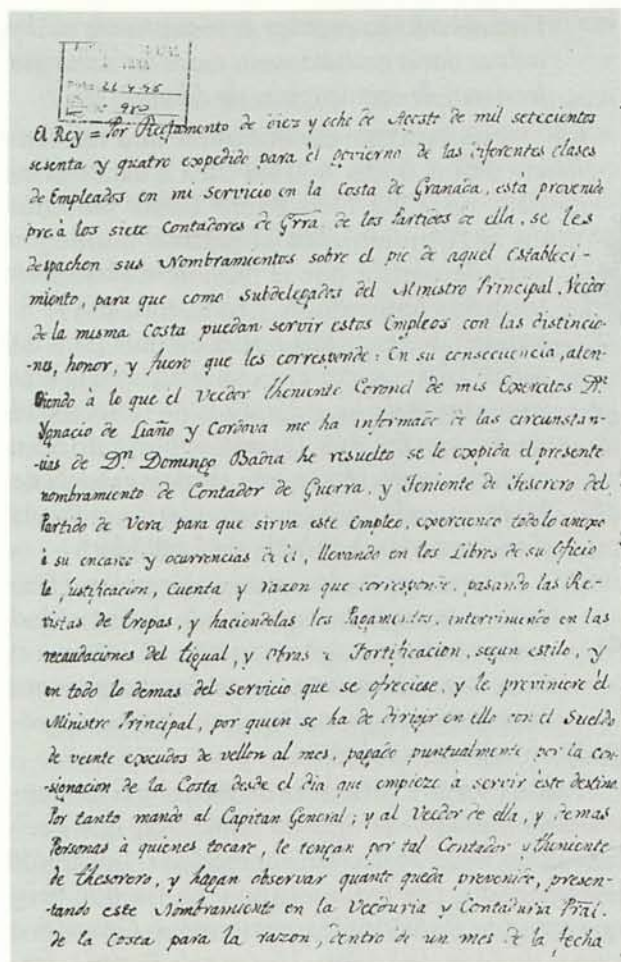 21 4 46
980
El Rey = Por Reglamento de diez y ocho de Agosto de mil setecientos
sesenta y quatro expedido para èl govierno de las diferentes clases
de Empleados en mi Servicio en la Costa de Granada, està prevenido
pre.à los siete Contadores de Grrã. de los Partidos de ella, se les
despachen sus Nombramientos sobre el pie de aquel Estableci-
miento, para que como Subdelegados del Ministro Principal, Veedor
de la misma Costa puedan servir estos Empleos con las distincio-
-nes, honor, y fuero que les corresponde: En su consecuencia, aten-
diendo à lo que èl Veedor theniente Coronel de mis Exercitos Dn.
Ygnacio de Liaño y Cordova me ha informado de las circunstan-
-cias de Dn. Domingo Badia he resuelto se le expida el presente
nombramiento de Contador de Guerra, y Teniente de Tesorero del
Partido de Vera para que sirva este Empleo, exerciendo todo lo anexo
à su encargo y ocurrencias de èl, llevando en los Libros de su Oficio
la justificacion, Cuenta y razon que corresponde, pasando las Re-
vistas de tropas, y haciendolas los Pagamentos, interviniendo en las
recaudaciones del tiqual, y Obras de Fortificacion, segun estilo, y
en todo lo demas del servicio que se ofreciese, y le previniere èl
Ministro Principal, por quien se ha de dirigir en ello con el Sueldo
de veinte escudos de vellon al mes, pagado puntualmente por la con-
-signacion de la Costa desde el dia que empieze à servir èste destino.
Por tanto mando al Capitan General; y al Veedor de ella, y demas
Personas à quienes tocare, le tengan por tal Contador y theniente
de thesorero, y hagan observar quanto queda prevenido, presen-
-tando este Nombramiento en la Veeduria y Contaduria Pral.
de la Costa para la razon, dentro de un mes de la fecha